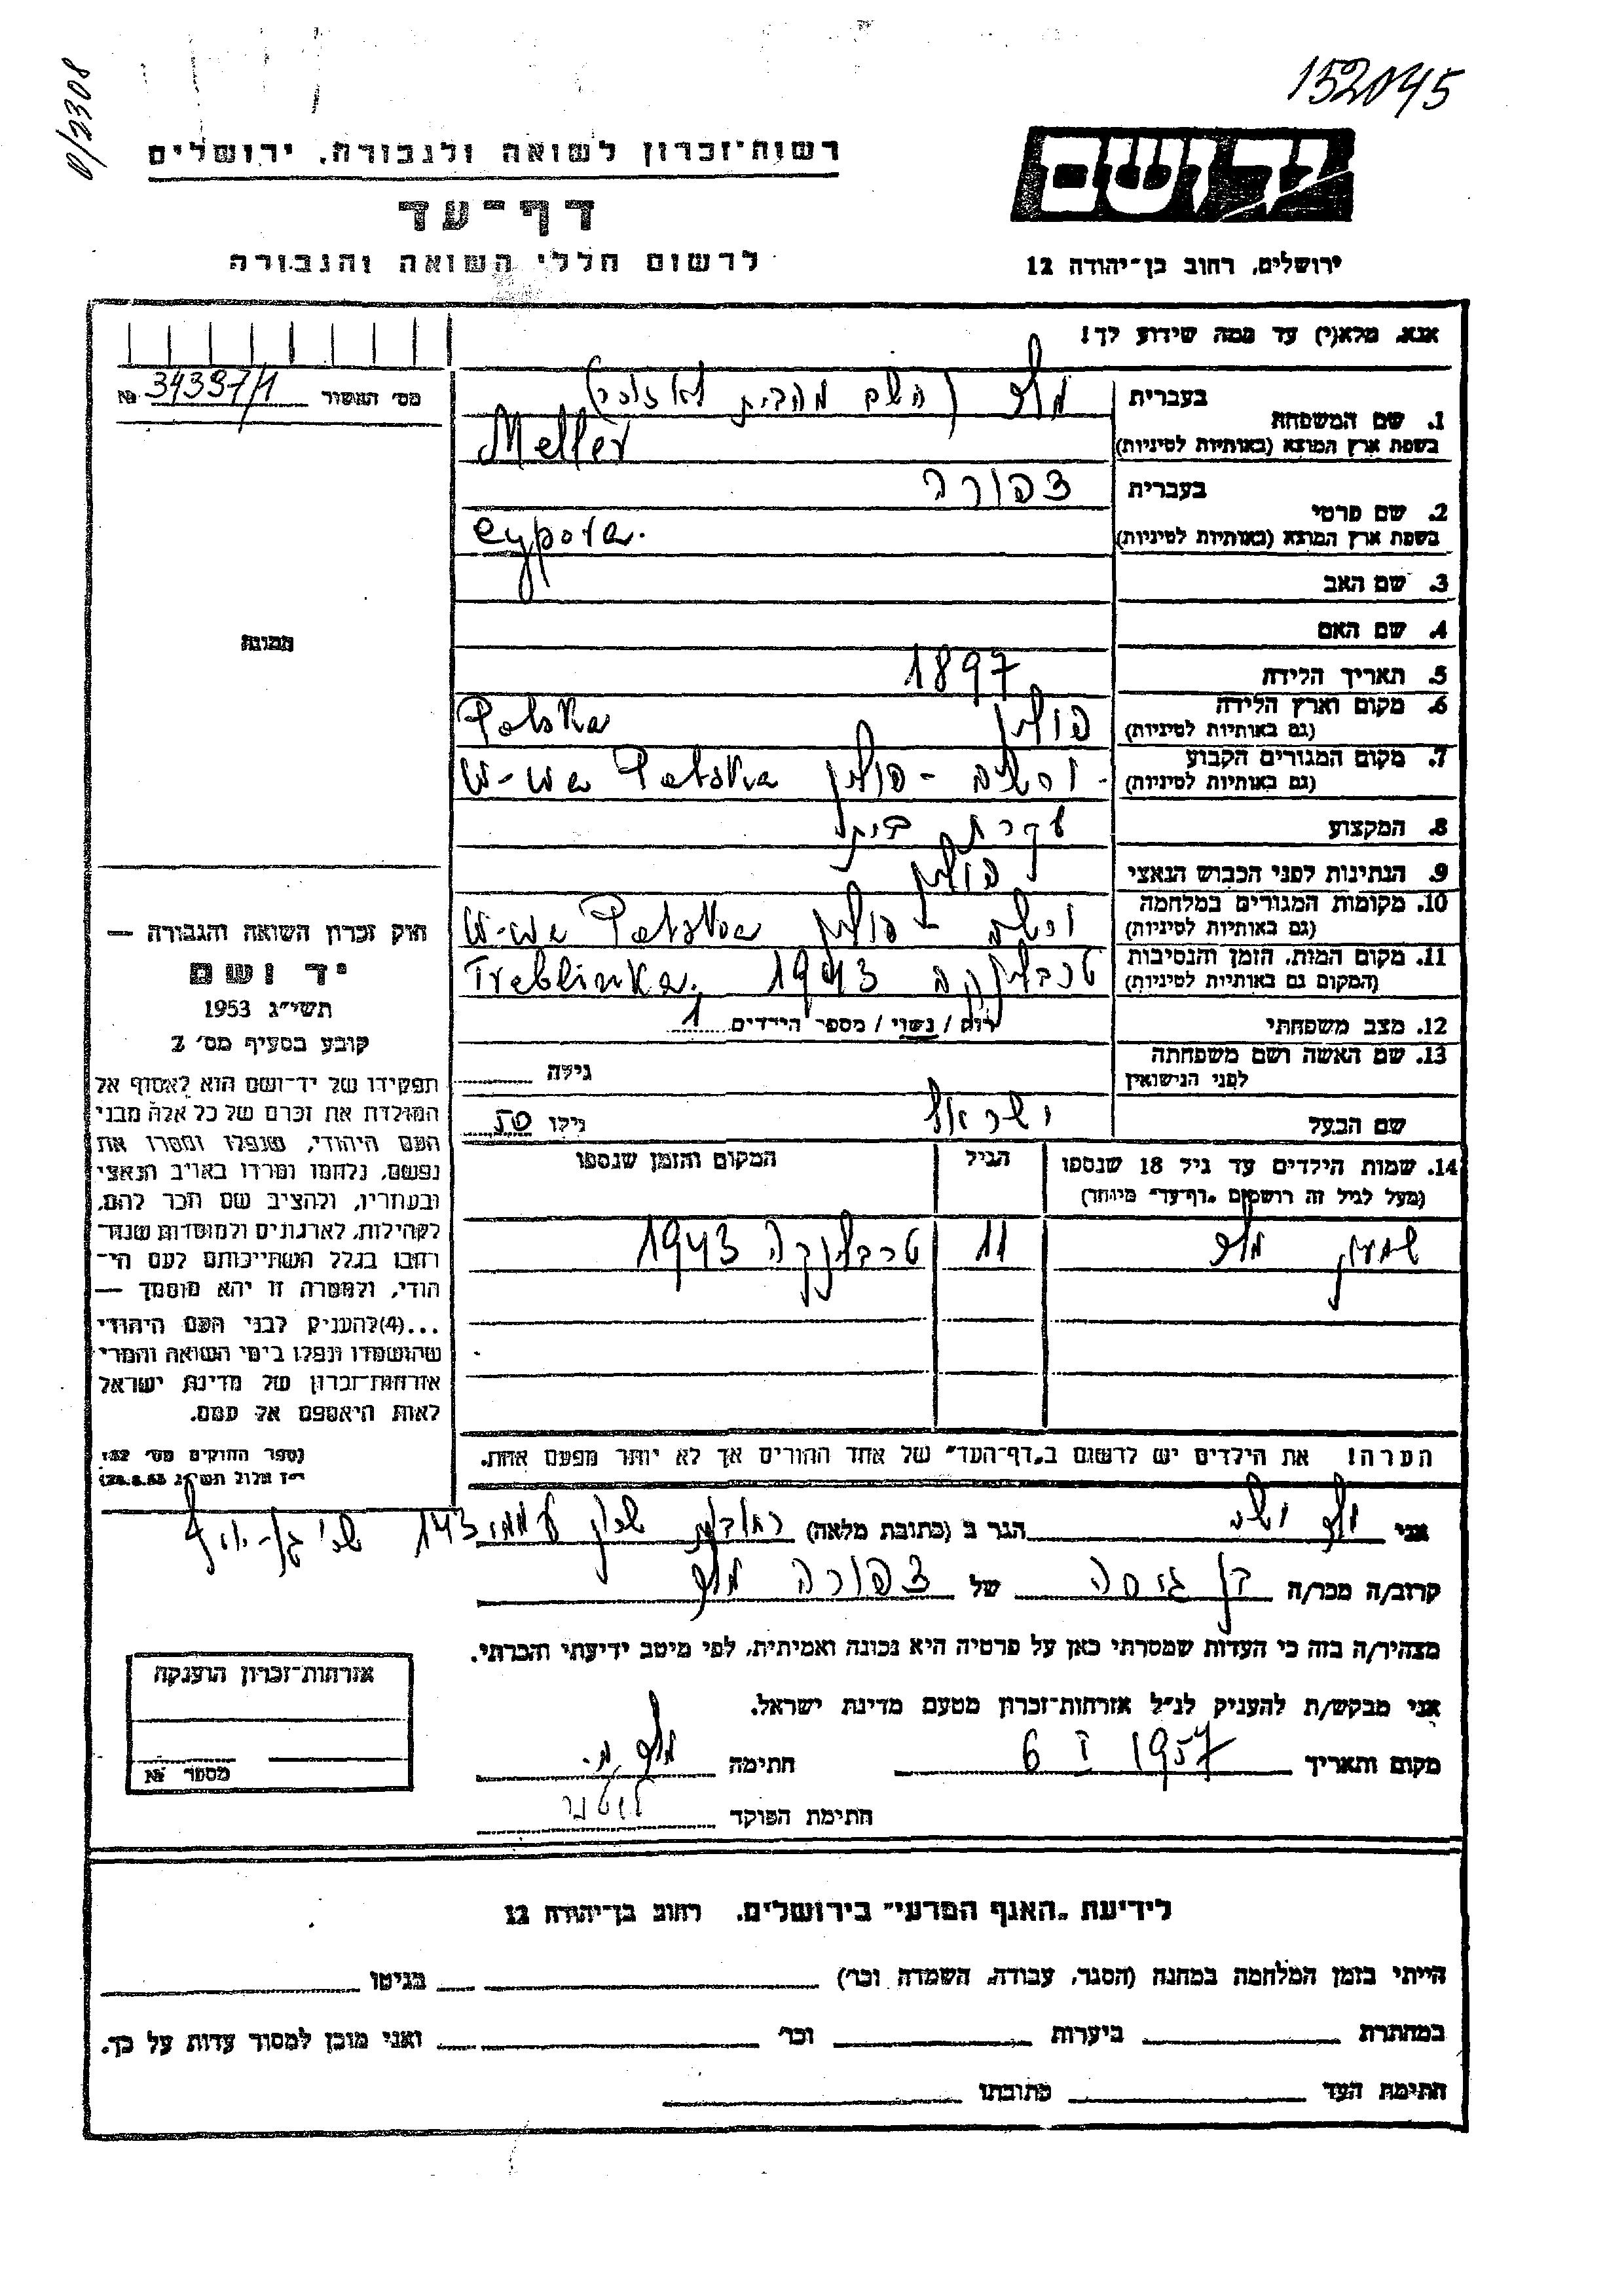 152045
0/2308
רשות־זכרון לשואה ולגבורה, ירושלים
דף־עד
לרשום חללי השואה והגבורה
יד ושם
ירושלים, רחוב בן־יהודה 12
אנא, מלא(י) עד כמה שידוע לך!
מס׳ המשור № 34397/1
1. שם המשפחה
בעברית (השם מהבית לא זוכר)
בשפת ארץ המוצא (באותיות לטיניות) Meller
2. שם פרטי
בעברית צפורה
בשפת ארץ המוצא (באותיות לטיניות) cypora.
3. שם האב
4. שם האם
תמונה
5. תאריך הלידה 1897
6. מקום וארץ הלידה
(גם באותיות לטיניות) פולין Polska
7. מקום המגורים הקבוע
(גם באותיות לטיניות) ורשה - פולין W-wa Polska
8. המקצוע עקרת בית
9. הנתינות לפני הכבוש הנאצי פולין
10. מקומות המגורים במלחמה
(גם באותיות לטיניות) ורשה - פולין W-wa Polska
11. מקום המות, הזמן והנסיבות
(המקום גם באותיות לטיניות) טרבלינקה 1943 Treblinka.
12. מצב משפחתי רוק / נשוי / מספר הילדים 1
13. שם האשה ושם משפחתה
לפני הנישואין גילה
שם הבעל ישראל גילו 50
14. שמות הילדים עד גיל 18 שנספו הגיל המקום והזמן שנספו
(מעל לגיל זה רושמים „דף־עד״ מיוחד)
שמעון 11 טרבלינקה 1943
הערה! את הילדים יש לרשום ב„דף־העד״ של אחד ההורים אך לא יותר מפעם אחת.
חוק זכרון השואה והגבורה —
יד ושם
תשי״ג 1953
קובע בסעיף מס׳ 2
תפקידו של יד־ושם הוא לאסוף אל
המולדת את זכרם של כל אלה מבני
העם היהודי, שנפלו ומסרו את
נפשם, נלחמו ומרדו באויב הנאצי
ובעוזריו, ולהציב שם וזכר להם,
לקהילות, לארגונים ולמוסדות שנח־
רבו בגלל השתייכותם לעם הי־
הודי, ולמטרה זו יהא מוסמך —
...(4)להעניק לבני העם היהודי
שהושמדו ונפלו בימי השואה והמרי
אזרחות־זכרון של מדינת ישראל
לאות היאספם אל עמם.
(ספר החוקים מס׳ 132
י״ז אלול תשי״ג 28.8.53)
אני הגר ב (כתובת מלאה) שכון עממי 143
קרוב/ה מכר/ה בן גיסה של צפורה
מצהיר/ה בזה כי העדות שמסרתי כאן על פרטיה היא נכונה ואמיתית, לפי מיטב ידיעתי והכרתי.
אני מבקש/ת להעניק לנ״ל אזרחות־זכרון מטעם מדינת ישראל.
מקום ותאריך 6 I 1957 חתימה
חתימת הפוקד
אזרחות־זכרון הוענקה
מספר №
לידיעת „האגף המדעי״ בירושלים, רחוב בן־יהודה 12
הייתי בזמן המלחמה במחנה (הסגר, עבודה, השמדה וכו׳) בגיטו
במחתרת ביערות וכו׳ ואני מוכן למסור עדות על כך.
חתימת העד כתובתו